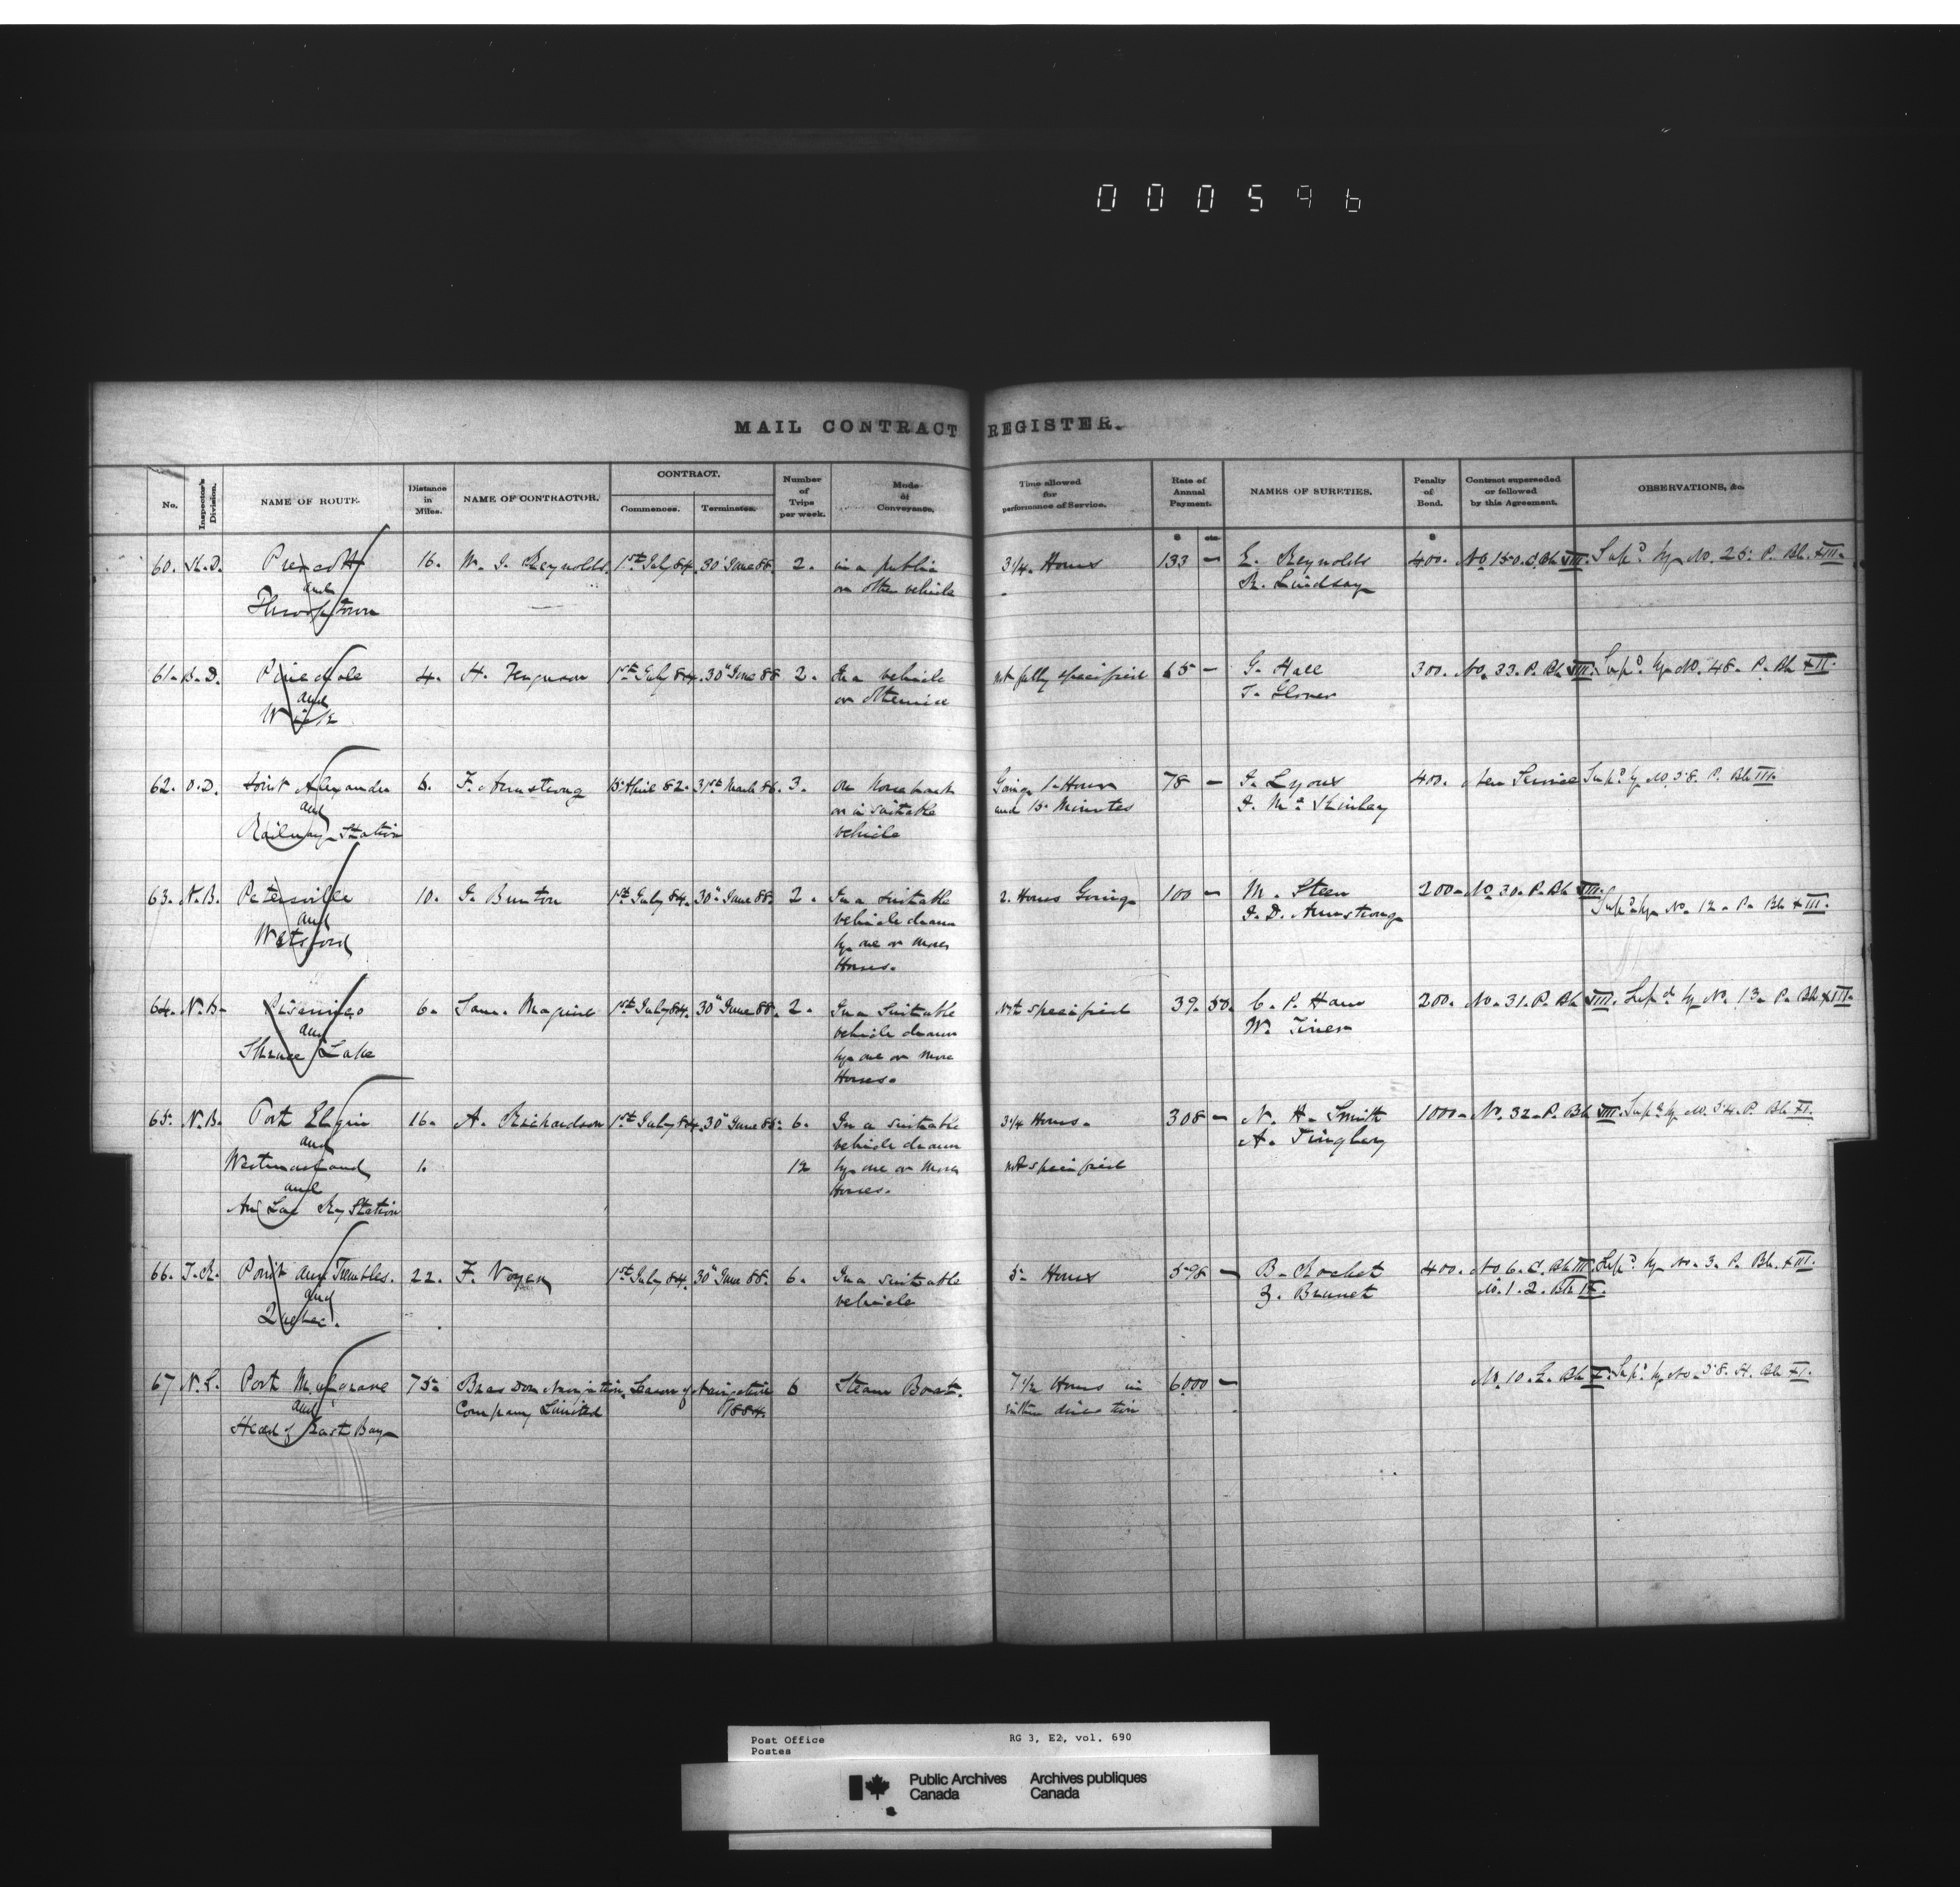 000596
MAIL CONTRACT REGISTER.
No. Inspector's Division. NAME OF ROUTE. Distance in Miles. NAME OF CONTRACTOR. CONTRACT. Commences. Terminates. Number of Trips per week. Mode of Conveyance. Time allowed for performance of Service. Rate of Annual Payment. NAMES OF SURETIES. Penalty of Bond. Contract superseded or followed by this Agreement. OBSERVATIONS, &c.
$ cts $
60. Prescott 16. W. J. Reynolds. 1st July 84. 30" June 88. 2. in a public 3 1/4 Hours 133 — E. Reynolds 400. No 150. Bk VIII. Sup'd by No. 25. P. Bk XIII.
and or other vehicle R. Lindsay
Throoptown
61. Pinedale 4. H. Ferguson 1st July 84. 30" June 88. 2. In a vehicle not fully specified 65 — G. Hall 300. No. 33. P. Bk VIII. Sup'd by No. 48. P. Bk
and or otherwise T. Glover
Wick
62. O.D. Point Alexander 6. F. Armstrong 15 April 82. 31st March 86. 3. On Horseback Going 1 Hour 78 — 400. New Service Sup'd by No. 58. P. Bk
and or in suitable and 15 Minutes
Railway Station vehicle
63. N.B. Petersville 10. J. Bunton 1st July 84. 30" June 88. 2. In a suitable 2. Hours Going 100 — M. Steen 200 — No 30. P. Bk VIII.
and vehicle drawn J. D. Armstrong Sup'd by No. 12. P. Bk XIII.
Watsford by one or more
Horses.
64. N.B. Pisarinco 6. Maguire 1st July 84. 30" June 88. 2. In a Suitable Not specified 39. 50. C. P. Ham 200. No. 31. P. Bk VIII. Sup'd by No. 13. P. Bk XIII.
and vehicle drawn W.
Spruce Lake by one or more
Horses.
65. N.B. Port Elgin 16. A. Richardson 1st July 84. 30" June 6. In a suitable 3 1/4 Hours. 308 — N. H. Smith 1000 — No. 32. P. Bk VIII. Sup'd by No. 54. P. Bk XI.
and vehicle drawn A. Tingley
Westmorland 1. 12 by one or more not specified
and Horses.
Au Lac Ry Station
66. Point aux Trembles. 22. F. 1st July 84. 30" June 88. 6. In a suitable 5 Hours 598 — B. Rochet 400. No 6. Bk III. Sup'd by No. 3. P. Bk XIII.
and vehicle Z. Brunet No. 1. 2. Bk
Quebec.
67 Port Mulgrave 75 Bras Dor Navigation Season of Navigation 6 Steam Boat. 7 1/2 Hours in 6000 — No. 10. Bk Sup'd by No. 58. H. Bk XI.
and Company Limited 1884. either direction
Head of East Bay
Post Office RG 3, E2, vol. 690
Postes
Public Archives Archives publiques
Canada Canada